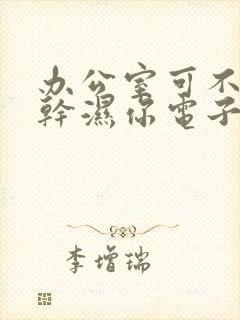 办公室可不
幹濕你電子
李增瑞